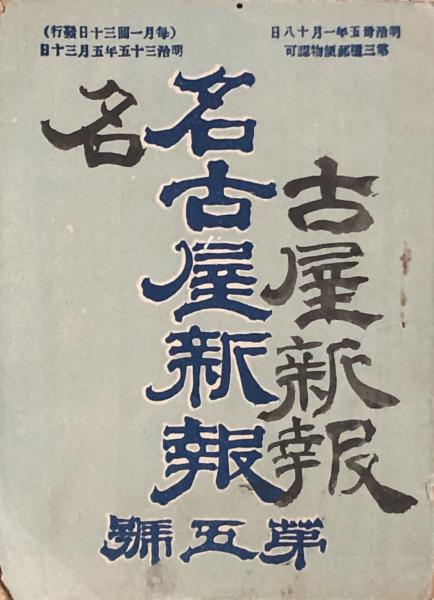 明治卅五年一月十八日
第三種郵便物認可
(每月一回三十日發行)
明治三十五年五月三十日
古屋新報
名古屋新報
名
第五號